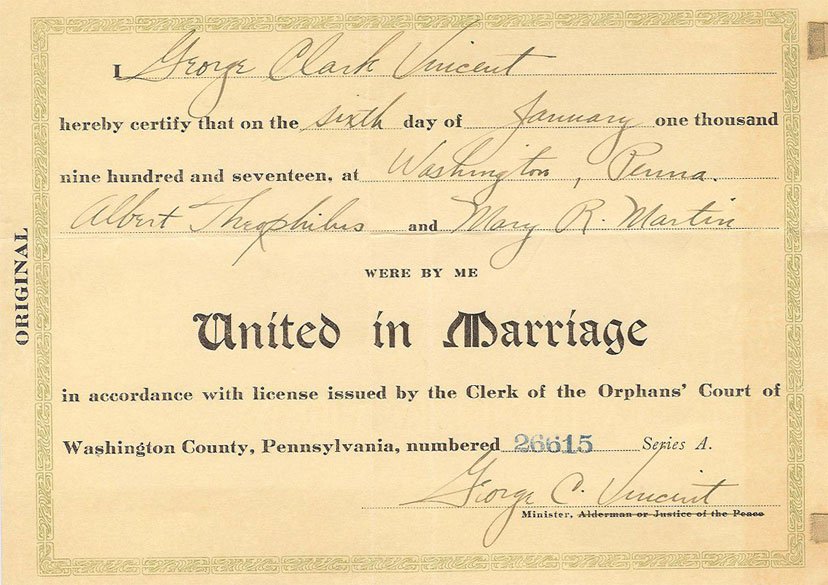 I George Clark Vincent
hereby certify that on the sixth day of January one thousand
nine hundred and seventeen, at Washington, Penna.
Albert Theophilus and Mary R. Martin
WERE BY ME
United in Marriage
in accordance with license issued by the Clerk of the Orphans' Court of
Washington County, Pennsylvania, numbered 26615 Series A.
George C. Vincent
Minister, Alderman or Justice of the Peace
ORIGINAL